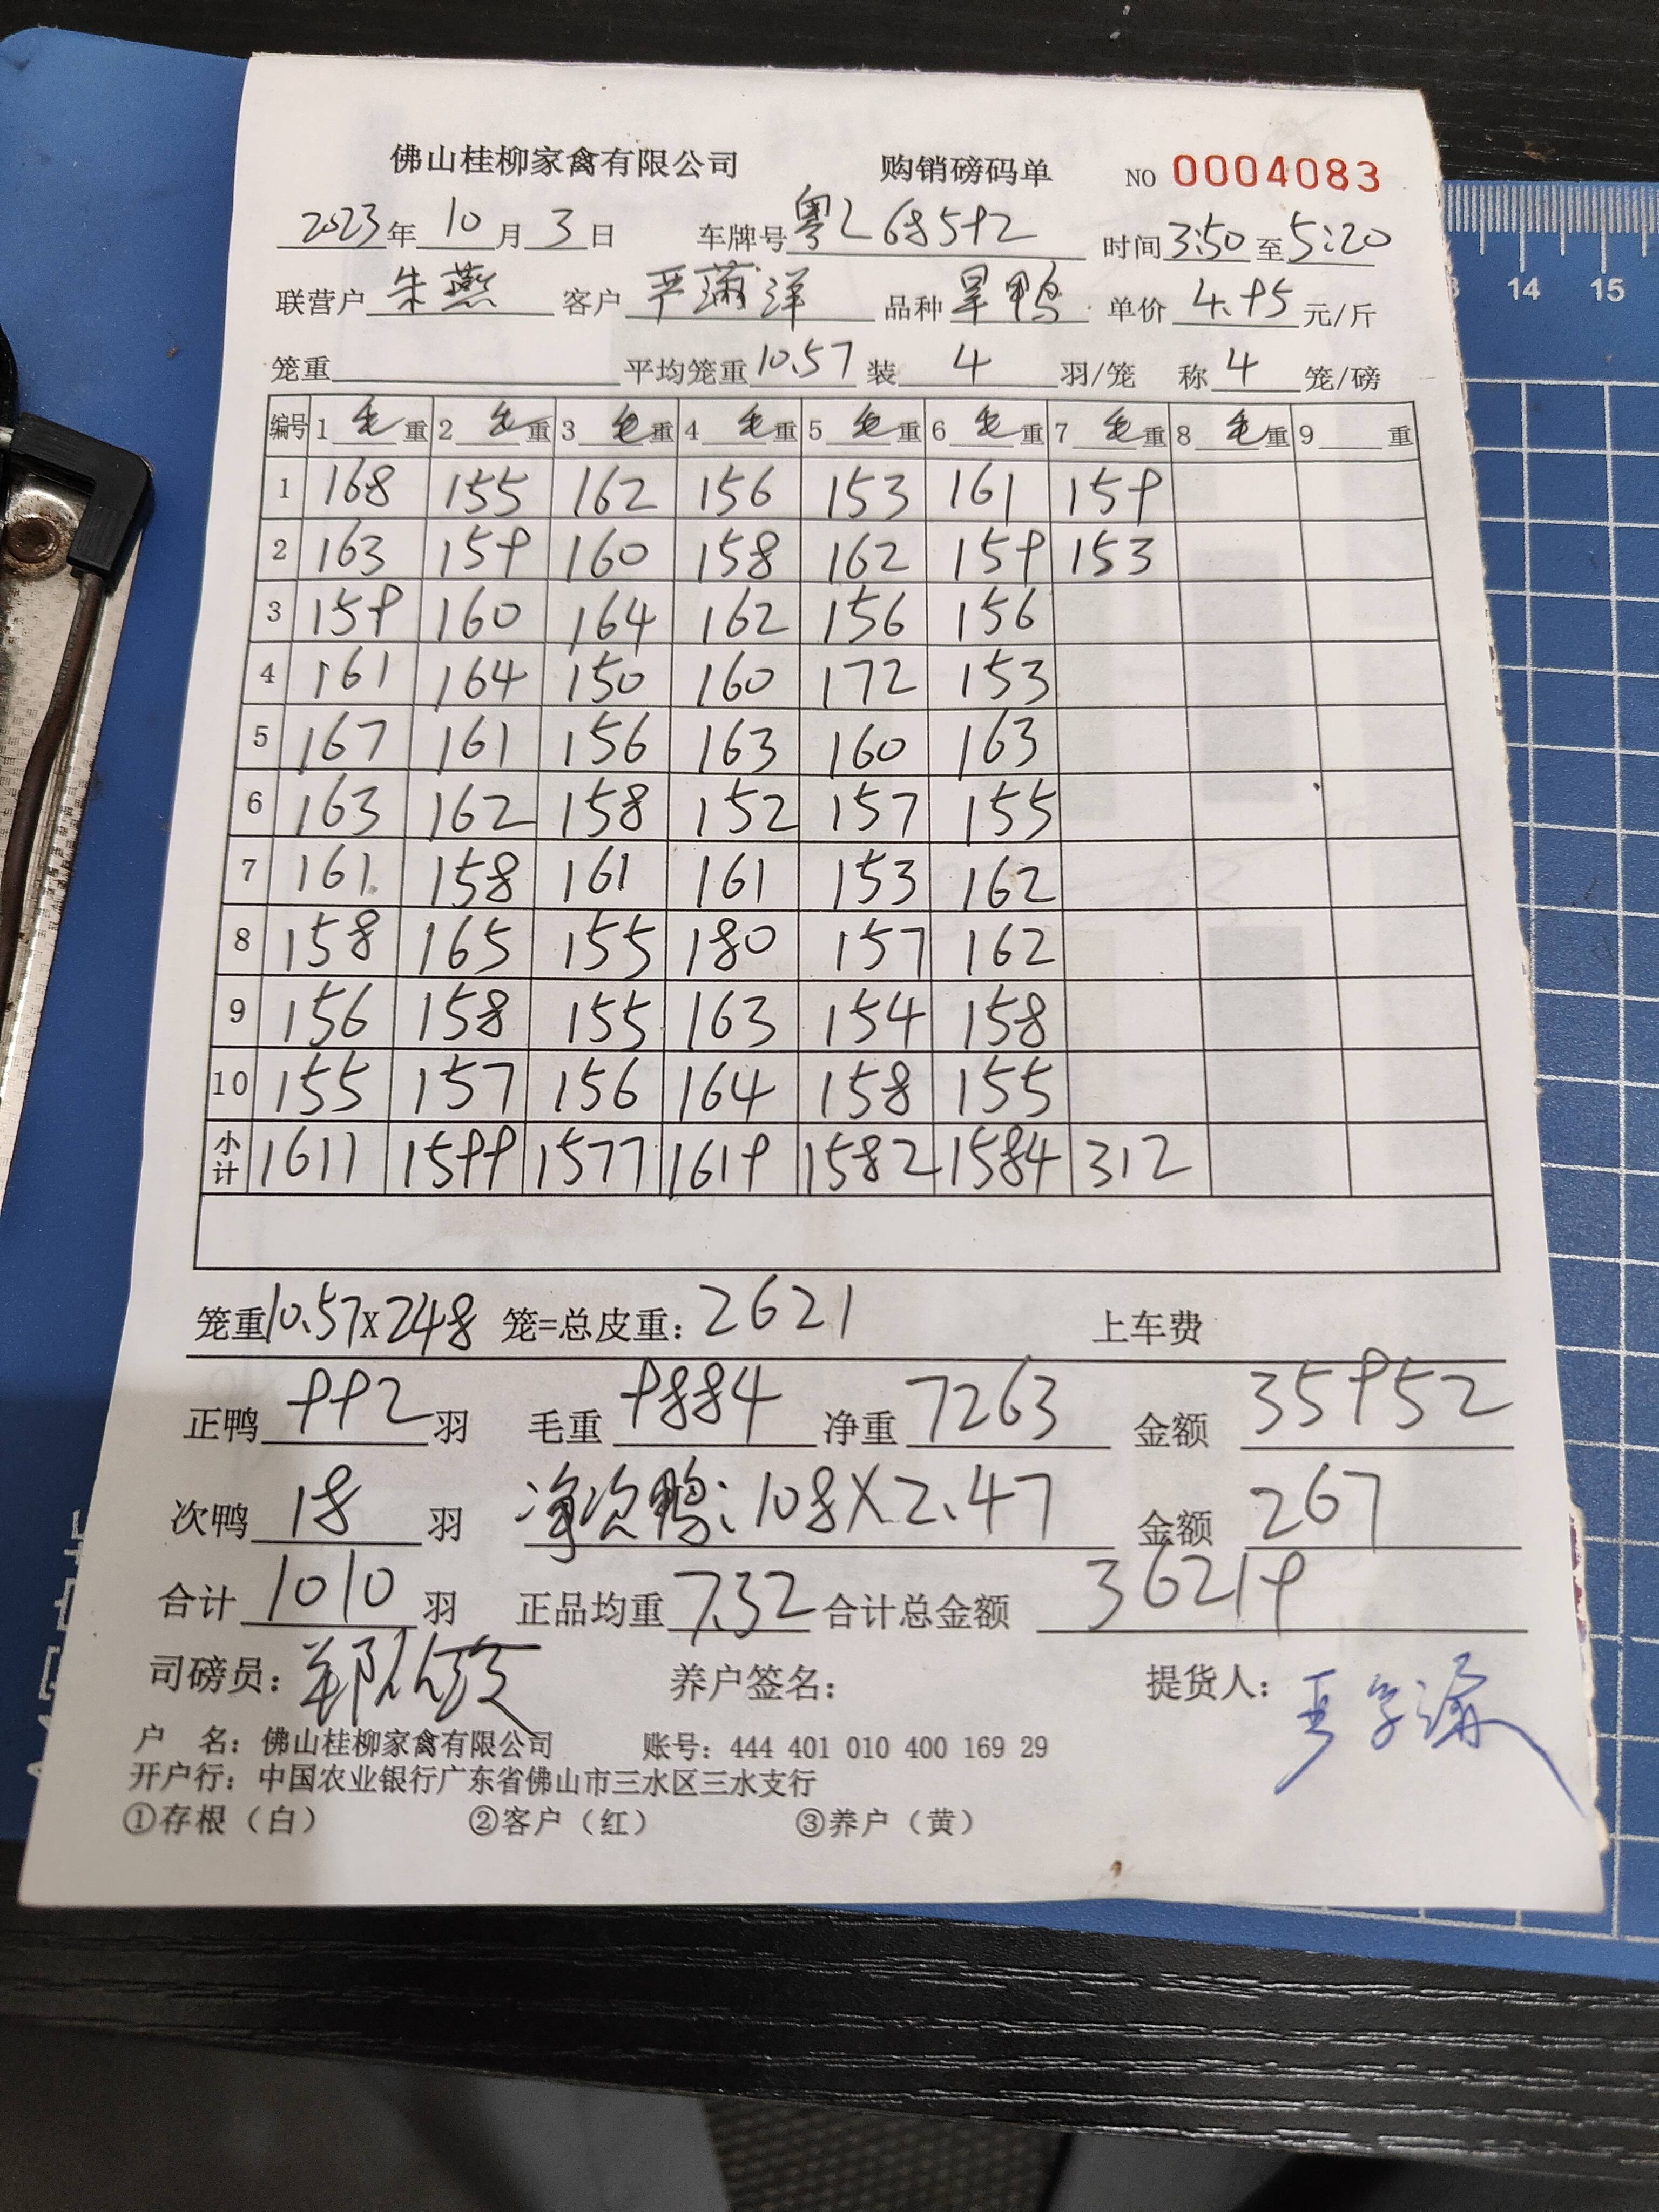 佛山桂柳家禽有限公司 购销磅码单 NO 0004083
2023年10月3日 车牌号粤L68592 时间3:50至5:20
联营户朱燕 客户严蒲洋 品种旱鸭 单价4.95元/斤
笼重 平均笼重10.57装4羽/笼 称4笼/磅
编号 1毛重 2毛重 3毛重 4毛重 5毛重 6毛重 7毛重 8毛重 9重
1 168 155 162 156 153 161 159
2 163 159 160 158 162 159 153
3 159 160 164 162 156 156
4 161 164 150 160 172 153
5 167 161 156 163 160 163
6 163 162 158 152 157 155
7 161 158 161 161 153 162
8 158 165 155 180 157 162
9 156 158 155 163 154 158
10 155 157 156 164 158 155
小计 1611 1599 1577 1619 1582 1584 312
笼重10.57X248 笼=总皮重：2621 上车费
正鸭992羽 毛重9884净重7263 金额35952
次鸭18羽 净次鸭：108X2.47 金额267
合计1010羽 正品均重7.32合计总金额36219
司磅员： 养户签名： 提货人：
户 名：佛山桂柳家禽有限公司 账号：444 401 010 400 169 29
开户行：中国农业银行广东省佛山市三水区三水支行
①存根（白） ②客户（红） ③养户（黄）
14 15